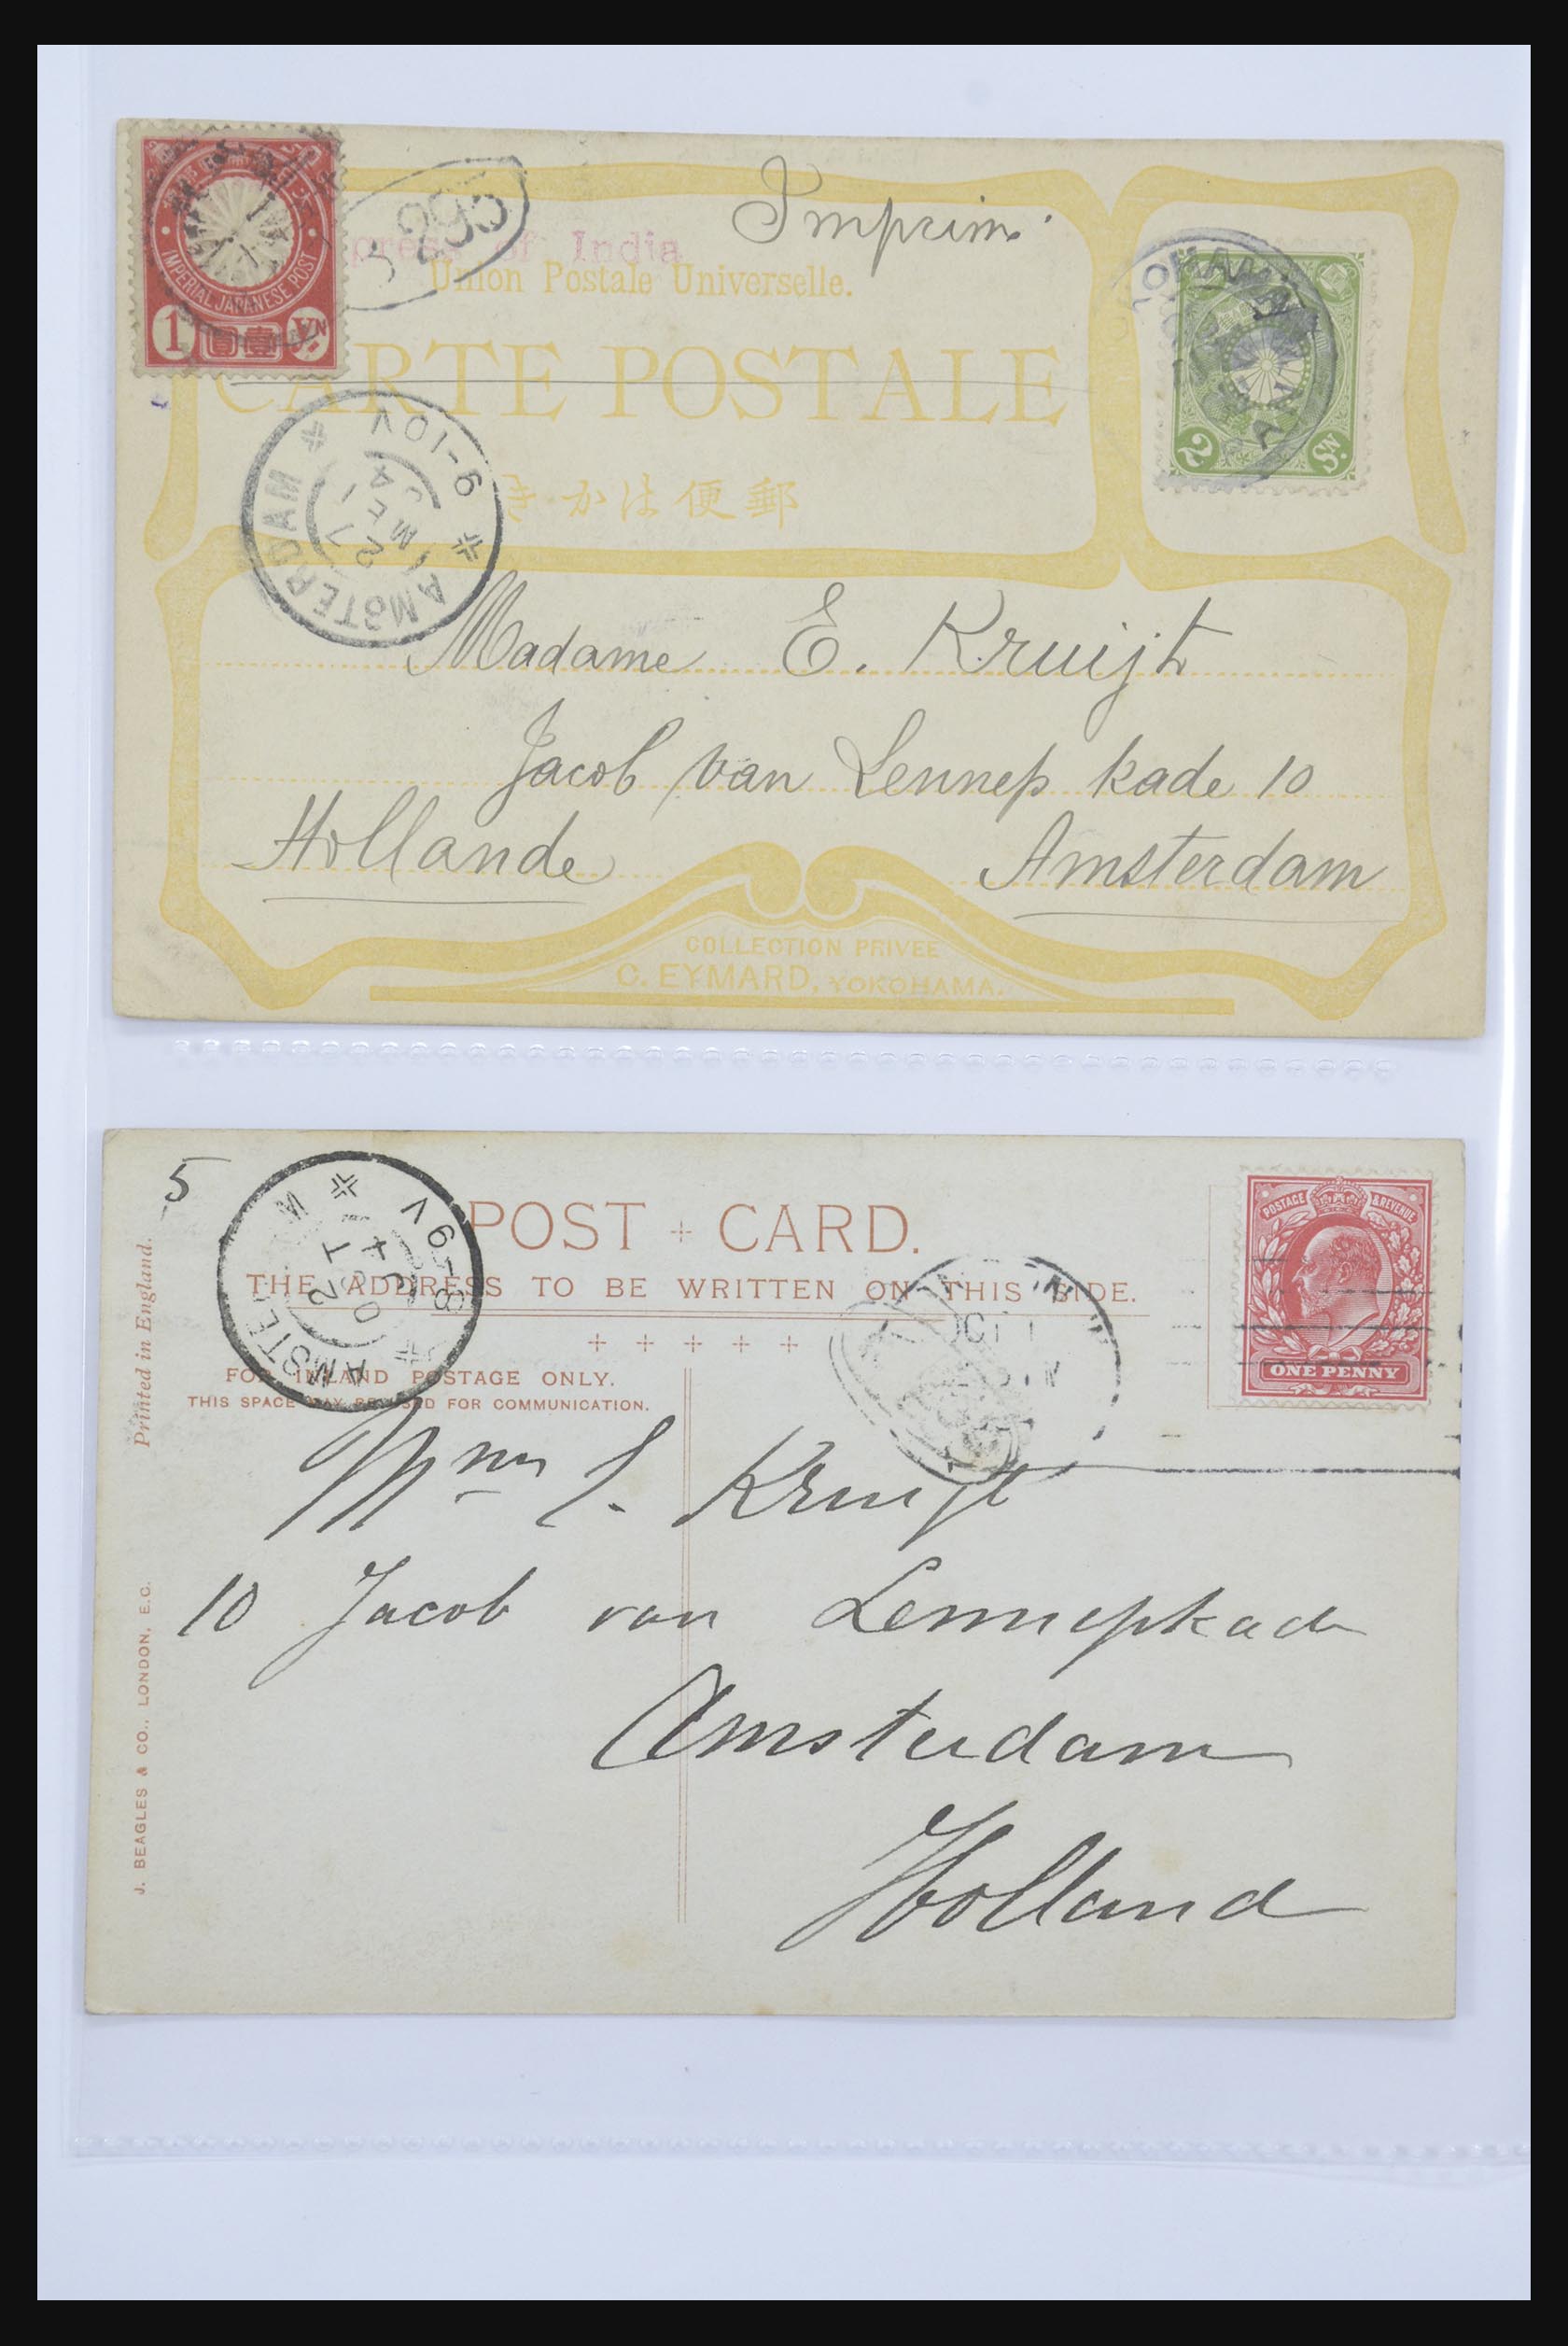 IMPERIAL JAPANESE POST
1 圓壹 Yn
press of India
Imprim.
Union Postale Universelle.
CARTE POSTALE
YOKOHAMA
JAPAN
2 Sn.
きかは便郵
AMSTERDAM
9-10V
27 MEI
Madame E. Kruijt
Jacob van Lennep kade 10
Hollande Amsterdam
COLLECTION PRIVEE
C. EYMARD, YOKOHAMA.
5
POST CARD.
THE ADDRESS TO BE WRITTEN ON THIS SIDE.
FOR INLAND POSTAGE ONLY.
THIS SPACE MAY BE USED FOR COMMUNICATION.
AMSTE M
8-9V
OCT 1
POSTAGE & REVENUE
ONE PENNY
Printed in England.
J. BEAGLES & CO., LONDON, E.C.
Mme E. Kruijt
10 Jacob van Lennepkade
Amsterdam
Holland